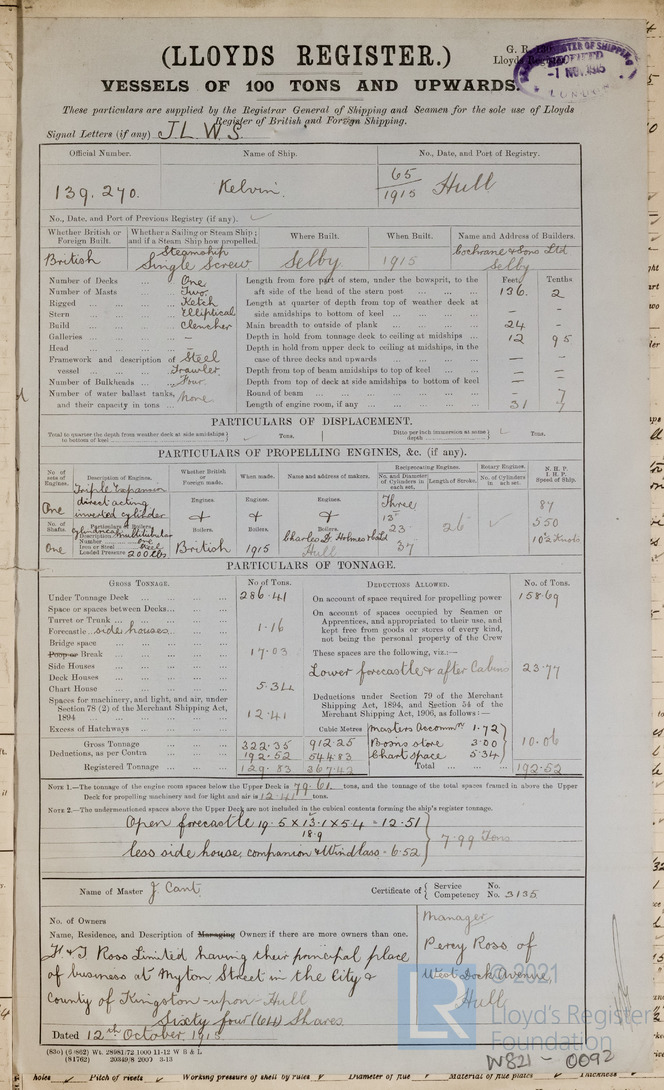 (LLOYDS REGISTER.)
VESSELS OF 100 TONS AND UPWARDS.
These particulars are supplied by the Registrar General of Shipping and Seamen for the sole use of Lloyds
Register of British and Foreign Shipping.
Signal Letters (if any) J.L.W.S.
-1 NOV. 1915
LONDON
Official Number. Name of Ship. No., Date, and Port of Registry.
139,270. Kelvin. 65/1915 Hull
No., Date, and Port of Previous Registry (if any).
Whether British or Foreign Built. Whether a Sailing or Steam Ship; and if a Steam Ship how propelled. Where Built. When Built. Name and Address of Builders.
British Steamship Single Screw Selby 1915 Cochrane & Sons Ltd Selby
Number of Decks ... One
Number of Masts ... Two
Rigged ... Ketch
Stern ... Elliptical
Build ... Clencher
Galleries ... —
Head ... —
Framework and description of vessel ... Steel Trawler
Number of Bulkheads ... Four
Number of water ballast tanks, and their capacity in tons ... None
Feet. Tenths.
Length from fore part of stem, under the bowsprit, to the aft side of the head of the stern post 136. 2
Length at quarter of depth from top of weather deck at side amidships to bottom of keel - -
Main breadth to outside of plank 24 -
Depth in hold from tonnage deck to ceiling at midships 12 95
Depth in hold from upper deck to ceiling at midships, in the case of three decks and upwards — —
Depth from top of beam amidships to top of keel — —
Depth from top of deck at side amidships to bottom of keel — —
Round of beam - 7
Length of engine room, if any 31 7
PARTICULARS OF DISPLACEMENT.
Total to quarter the depth from weather deck at side amidships to bottom of keel Tons. Ditto per inch immersion at same depth Tons.
PARTICULARS OF PROPELLING ENGINES, &c. (if any).
No. of sets of Engines. Description of Engines. Whether British or Foreign made. When made. Name and address of makers. Reciprocating Engines. Rotary Engines. N. H. P. I. H. P. Speed of Ship.
No. and Diameter of Cylinders in each set. Length of Stroke. No. of Cylinders in each set.
One Triple Expansion direct acting inverted cylinder Engines. Engines. Engines. Three 15" 23 37 26 87 550 10½ Knots
No. of Shafts. Particulars of Boilers. Boilers. Boilers. Boilers.
One Description Cylindrical Multitubular
Number One
Iron or Steel Steel
Loaded Pressure 200 lbs
British 1915 Charles D. Holmes & Co Ltd Hull
PARTICULARS OF TONNAGE.
GROSS TONNAGE. No of Tons. DEDUCTIONS ALLOWED. No. of Tons.
Under Tonnage Deck 286.41
Space or spaces between Decks
Turret or Trunk
Forecastle side houses 1.16
Bridge space
Poop or Break 17.03
Side Houses
Deck Houses
Chart House 5.34
Spaces for machinery, and light, and air, under Section 78 (2) of the Merchant Shipping Act, 1894 12.41
Excess of Hatchways
Cubic Metres
Gross Tonnage 322.35 912.25
Deductions, as per Contra 192.52 544.83
Registered Tonnage 129.83 367.42
On account of space required for propelling power 158.69
On account of spaces occupied by Seamen or Apprentices, and appropriated to their use, and kept free from goods or stores of every kind, not being the personal property of the Crew
These spaces are the following, viz:—
Lower forecastle & after Cabins 23.77
Deductions under Section 79 of the Merchant Shipping Act, 1894, and Section 54 of the Merchant Shipping Act, 1906, as follows:—
Masters Accommn 1.72
Boatns store 3.00
Chart space 5.34
10.06
Total 192.52
NOTE 1.—The tonnage of the engine room spaces below the Upper Deck is 79.61 tons, and the tonnage of the total spaces framed in above the Upper
Deck for propelling machinery and for light and air is 12.41 tons.
NOTE 2.—The undermentioned spaces above the Upper Deck are not included in the cubical contents forming the ship's register tonnage.
Open forecastle 19.5 x 13.1 x 5.4 = 12.51
18.9
7.99 Tons
less side house, companion & Windlass = 6.52
Name of Master J Cant Certificate of { Service No. Competency No. 3135
No. of Owners
Name, Residence, and Description of Managing Owners if there are more owners than one.
F & T Ross Limited having their principal place
of business at Myton Street in the City &
County of Kingston-upon-Hull
Sixty four (64) Shares
Manager
Percy Ross of
West Dock Avenue,
Hull
Dated 12th October, 1915
(830) (6/862) Wt. 28981/72 1000 11-12 W B & L
(84762) 20349/8 200 3-13
© 2021
Lloyd's Register
Foundation
W821 - 0092
holes Pitch of rivets Working pressure of shell by rules Diameter of flue Material of flue plates Thickness